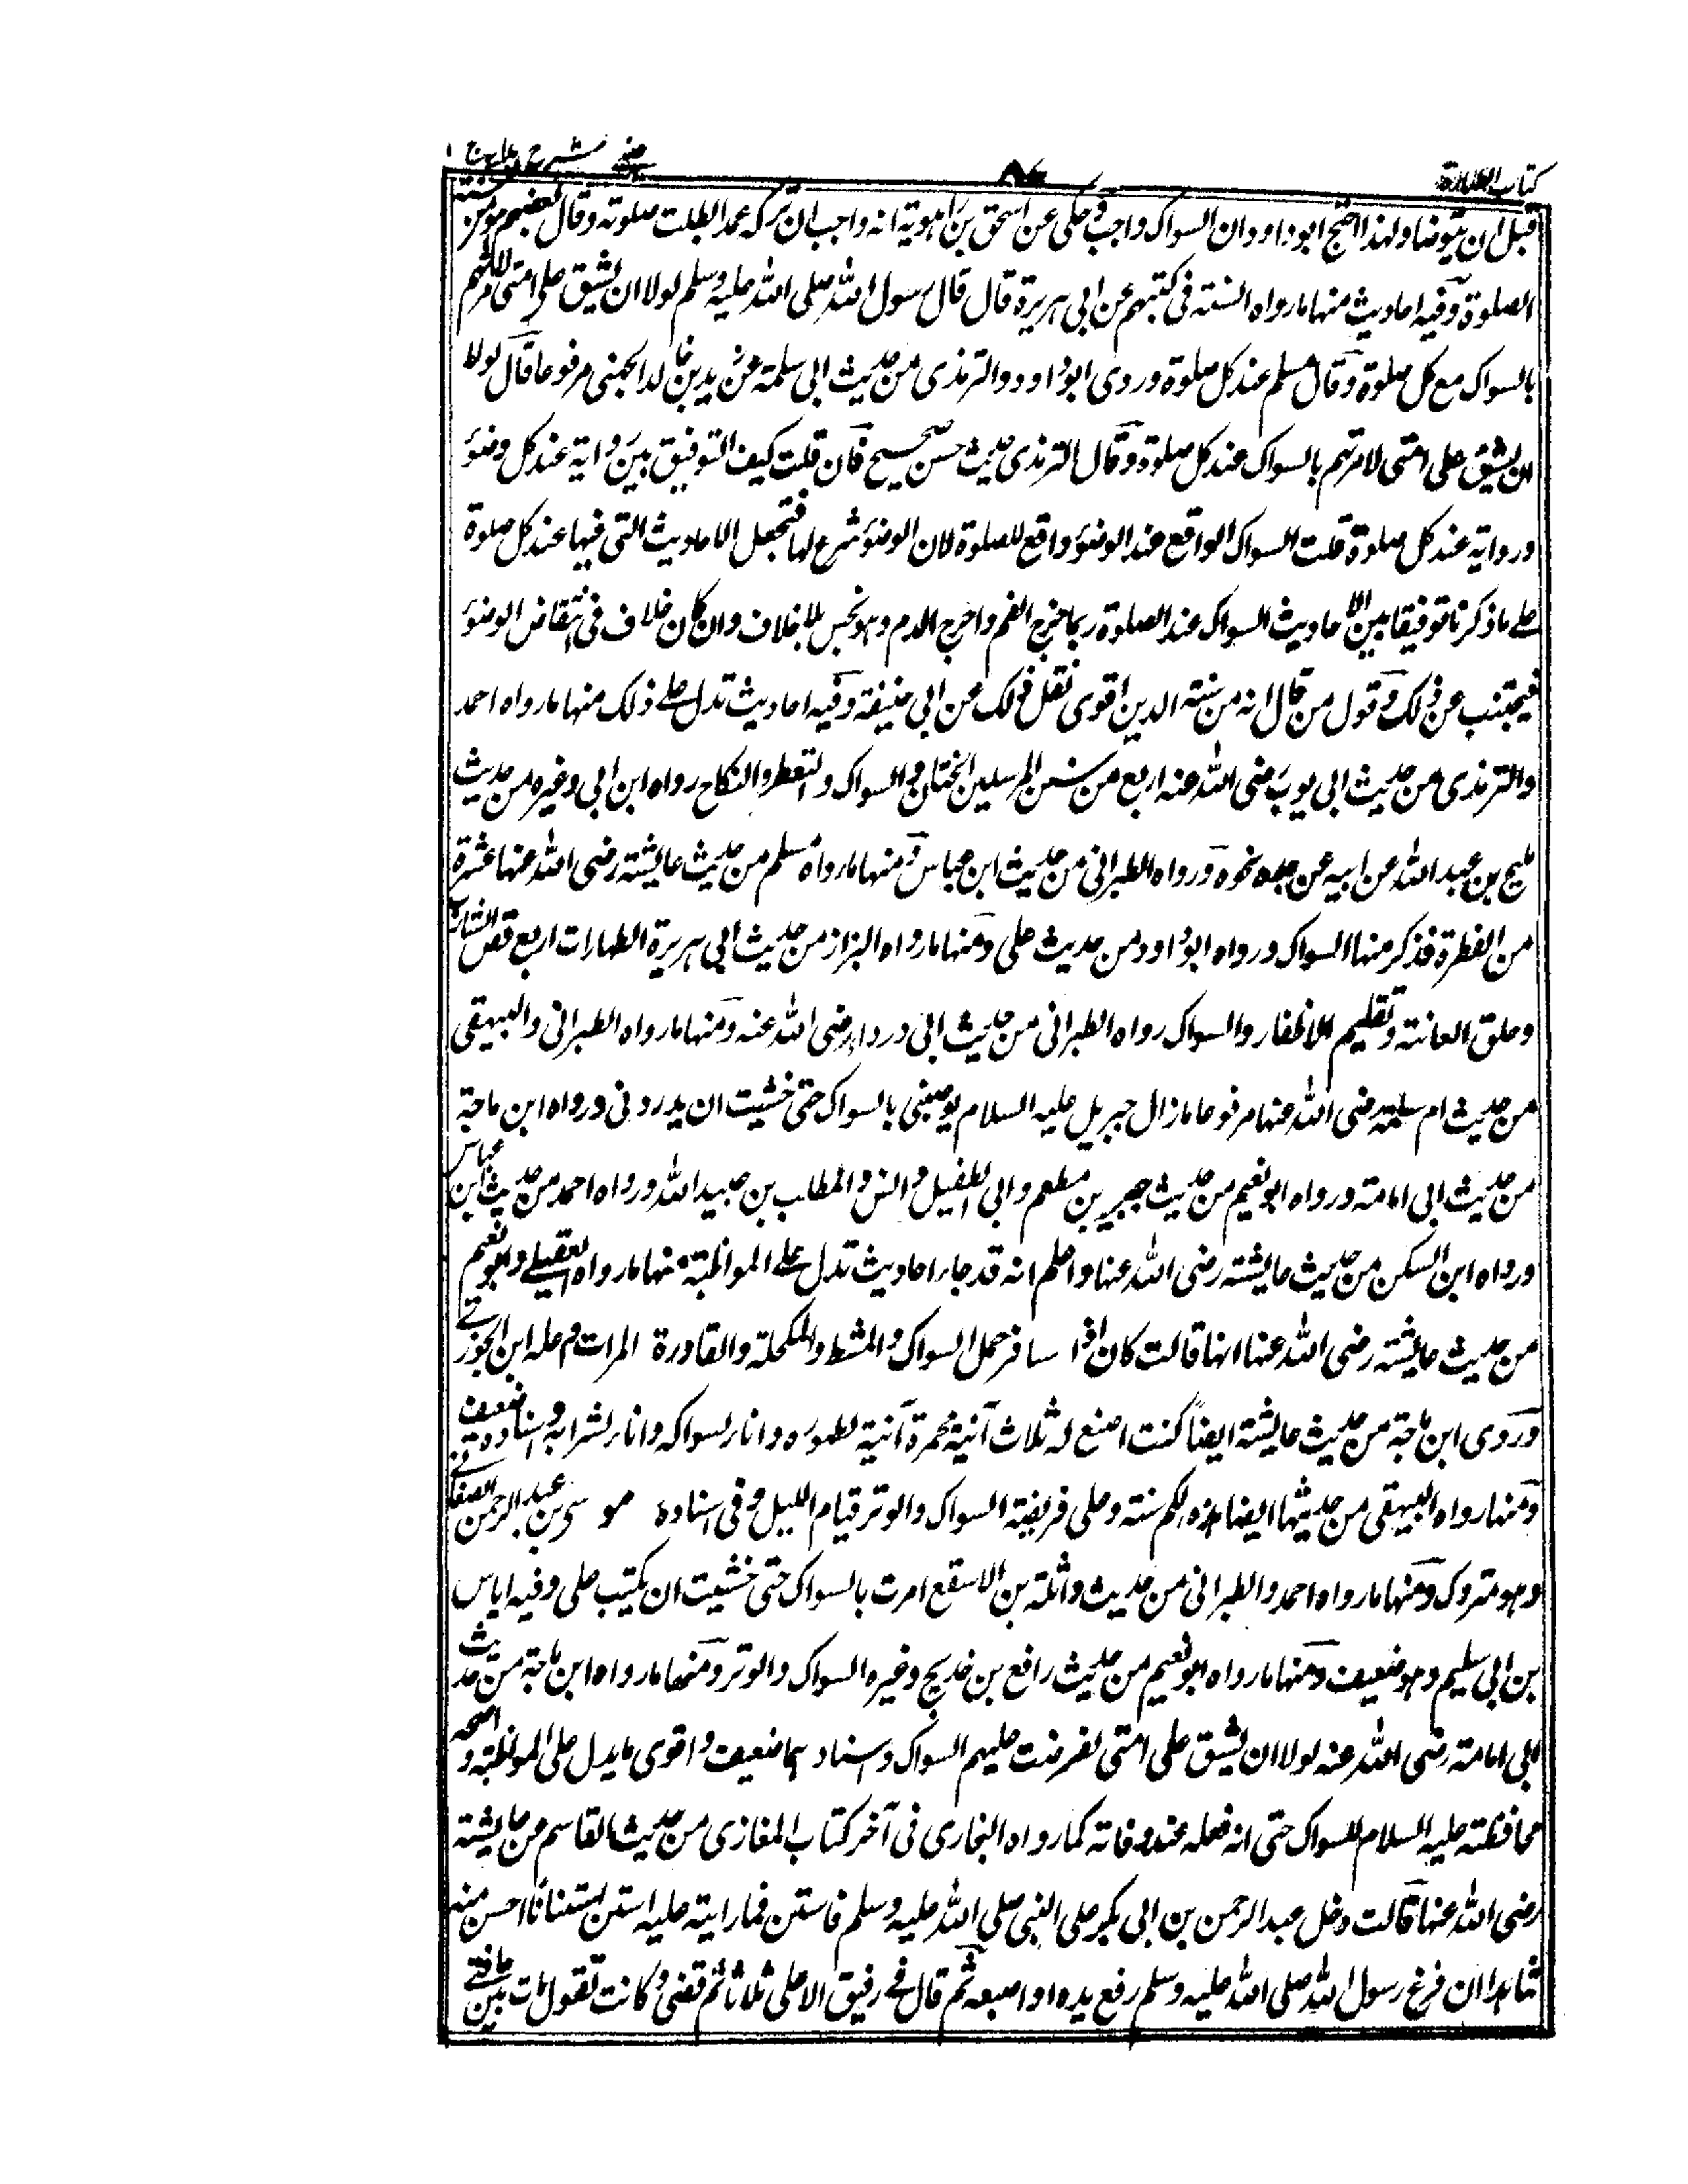 كتاب الطهارة
عيني شرح هداية ج ١
قبل ان يتوضا ولهذا احتج ابو داود ان السواك واجب وحكى عن اسحق بن راهوية انه واجب ان تركه عمدا بطلت صلوته وقال بعضهم هو من سنة
الصلوة وفيه احاديث منها ما رواه الستة في كتبهم عن ابي هريرة قال قال رسول الله صلى الله عليه وسلم لولا ان يشق على امتى لامرتهم
بالسواك مع كل صلوة وقال مسلم عند كل صلوة وروى ابو داود والترمذى من حديث ابي سلمة عن زيد بن خالد الجهنى مرفوعا قال لولا
ان يشق على امتى لامرتهم بالسواك عند كل صلوة وقال الترمذى حديث حسن صحيح فان قلت كيف التوفيق بين رواية عند كل وضوء
ورواية عند كل صلوة قلت السواك الواقع عند الوضوء واقع للصلوة لان الوضوء شرع لها فتجعل الاحاديث التى فيها عند كل صلوة
على ما ذكرنا توفيقا بين الاحاديث السواك عند الصلوة ربما جرح الفم واخرج الدم وهو نجس بلا خلاف وان كان خلاف في انتقاض الوضوء
فيجتنب عن ذلك وقول من قال انه من سنة الدين اقوى نقل ذلك عن ابي حنيفة وفيه احاديث تدل على ذلك منها ما رواه احمد
والترمذى من حديث ابي ايوب رضى الله عنه اربع من سنن المرسلين الختان والسواك والتعطر والنكاح رواه ابن ابي وغيره من حديث
مليح بن عبد الله عن ابيه عن جده نحوه ورواه الطبراني من حديث ابن عباس ومنها ما رواه مسلم من حديث عايشة رضى الله عنها عشرة
من الفطرة فذكر منها السواك ورواه ابو داود من حديث على ومنها ما رواه البزاز من حديث ابي هريرة الطهارات اربع قص الشارب
وحلق العانة وتقليم الاظفار والسواك رواه الطبراني من حديث ابي درداء رضى الله عنه ومنها ما رواه الطبراني والبيهقى
من حديث ام سلمة رضى الله عنها مرفوعا ما زال جبريل عليه السلام يوصينى بالسواك حتى خشيت ان يدردنى ورواه ابن ماجة
من حديث ابي امامة ورواه ابو نعيم من حديث جبير بن مطعم وابي الطفيل وانس والمطلب بن عبيد الله ورواه احمد من حديث ابن عباس
ورواه ابن السكن من حديث عايشة رضى الله عنها واعلم انه قد جاء احاديث تدل على المواظبة منها ما رواه العقيلى وابو نعيم
من حديث عايشة رضى الله عنها انها قالت كان اذا سافر حمل السواك والمشط والمكحلة والقاورة المرات واعله ابن الجوزى
وروى ابن ماجة من حديث عايشة ايضا كنت اصنع له ثلاث آنية مخمرة آنية لطهوره واناء لسواكه واناء لشرابه واسناده ضعيف
ومنها رواه البيهقى من حديثها ايضا هذه لكم سنة وعلى فريضة السواك والوتر وقيام الليل وفى اسناده موسى بن عبد الرحمن الصنعاني
وهو متروك ومنها ما رواه احمد والطبراني من حديث واثلة بن الاسقع امرت بالسواك حتى خشيت ان يكتب على وفيه اياس
بن ابي سليم وهو ضعيف ومنها ما رواه ابو نعيم من حديث رافع بن خديج وغيره السواك والوتر ومنها ما رواه ابن ماجة من حديث
ابي امامة رضى الله عنه لولا ان يشق على امتى لفرضت عليهم السواك واسنادهما ضعيف واقوى ما يدل على المواظبة واصحه
محافظته عليه السلام للسواك حتى انه فعله عند وفاته كما رواه البخارى فى آخر كتاب المغازى من حديث القاسم من عايشة
رضى الله عنها قالت دخل عبد الرحمن بن ابي بكر على النبى صلى الله عليه وسلم فاستن فما رايته عليه استن استنانا احسن منه
ان فرغ رسول الله صلى الله عليه وسلم رفع يده او اصبعه ثم قال فى رفيق الاعلى ثلاثا ثم قضى وكانت تقول مات بين حاقنتى